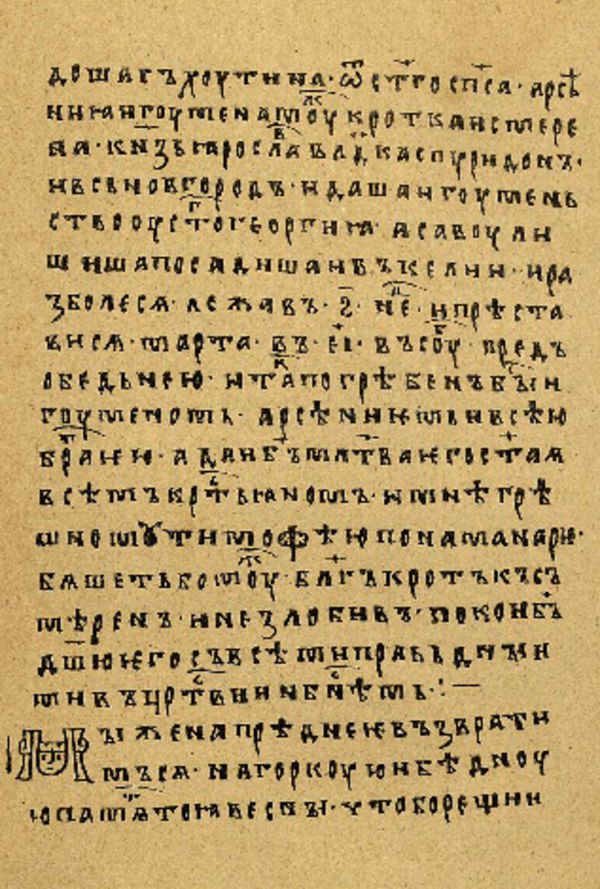 доша съ хоутина · ѿ ст҃го сп҃са · арсѣ
ниꙗ игоумена моу кротка и смѣре
на · кнѧзь ꙗрославъ вл҃дка спуридонъ ·
и вьсь новгородъ · и даша игоумень
ство оу ст҃го георгиꙗ · а савоу ли
шиша посадиша и въ келии · и ра
зболесѧ · лежавъ · ѕ҃ · не · и прѣста
висѧ · марта · въ · е҃і · въ соу предъ
обедьнею · и тако погрѣбенъ бы и
гоуменомь · арсѣниѥмь и всѣю
братиѥю · а даи бъ мл҃тва ѥго ст҃аꙗ
всѣмъ крт҃ьꙗномъ · и мнѣ грѣ
шномꙋ тимофѣю понаманарю ·
бѧшеть бо моу бл҃гъ кротъкъ съ
мѣренъ · и незлобивъ · покои бъ
дш҃ю ѥго съ всѣми правьдными
ми въ црт҃вии нбнѣмь ·:—
Мы же на прѣднеѥ възврати
мъсѧ · на горкоую и бѣдноу
ю памѧ тоꙗ весны · что бо рещи и